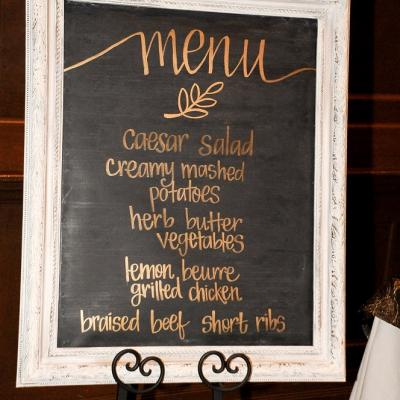 menu
caesar salad
creamy mashed
potatoes
herb butter
vegetables
lemon beurre
grilled chicken
braised beef short ribs